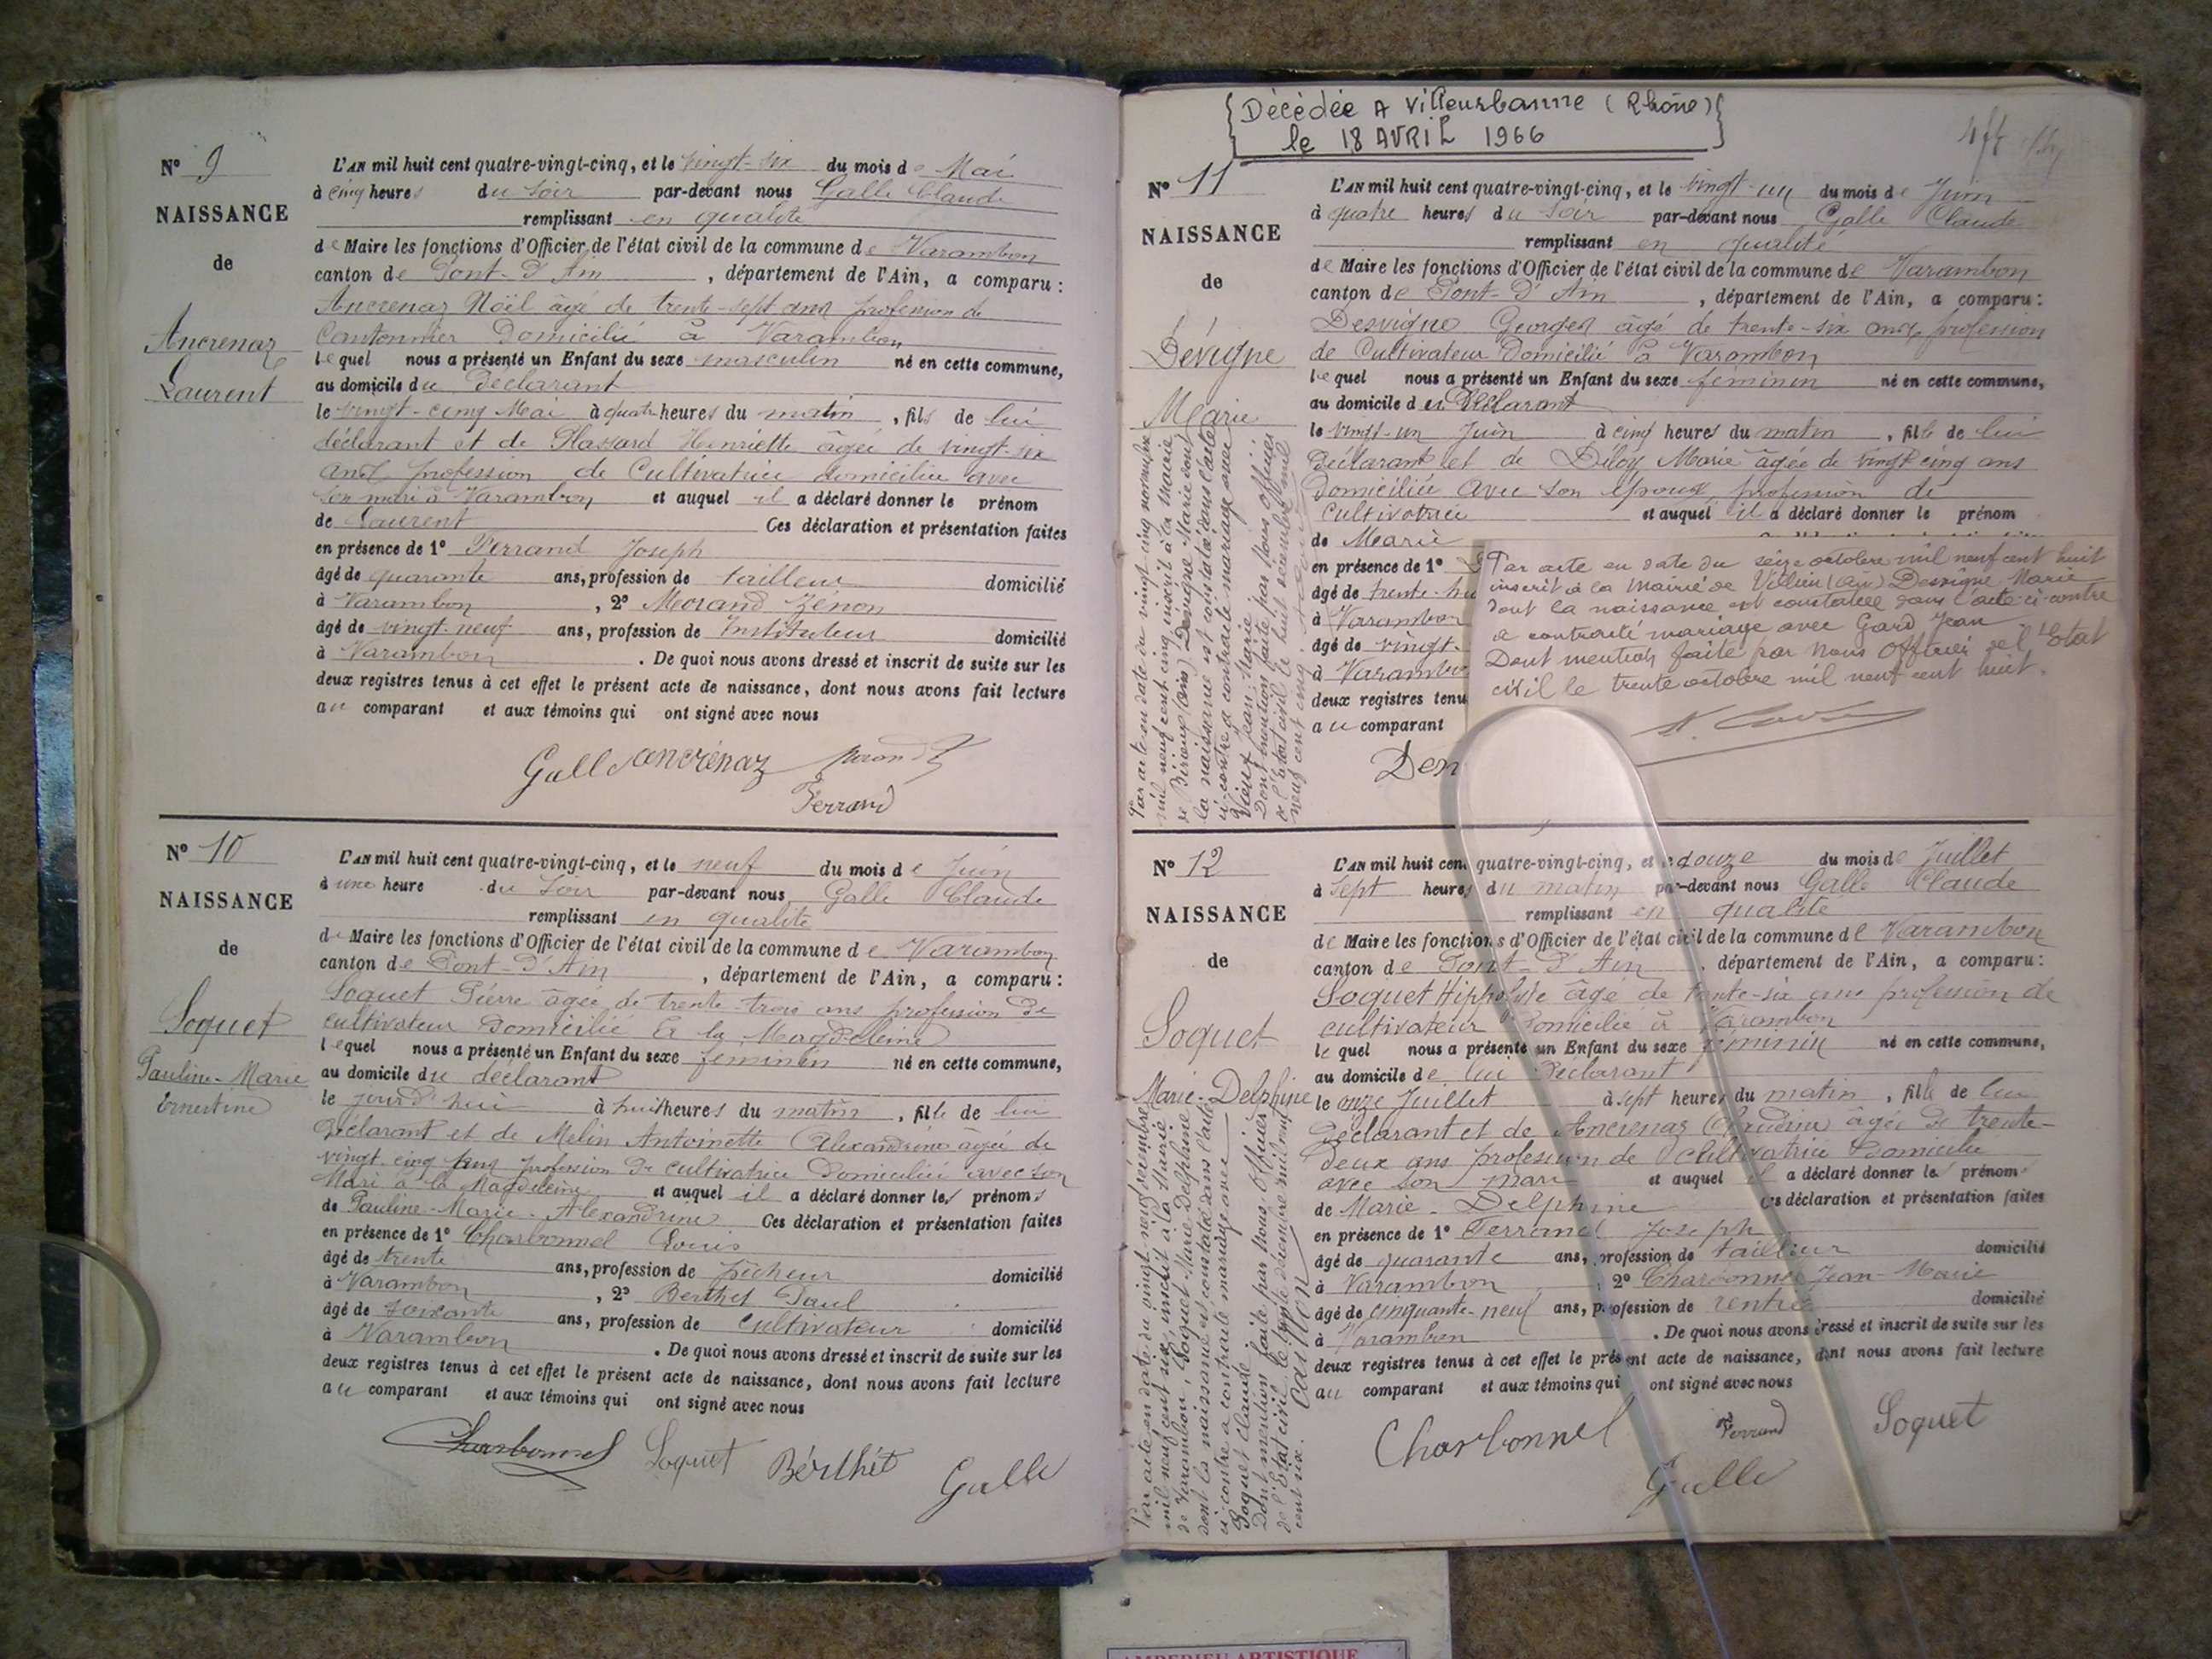 N° 9
NAISSANCE
de
Ancrenaz
Laurent
L'AN mil huit cent quatre-vingt-cinq, et le vingt-six du mois de Mai
à cinq heures du soir par-devant nous Galle Claude
remplissant en qualité
de Maire les fonctions d'Officier de l'état civil de la commune de Varambon
canton de Pont-d'Ain, département de l'Ain, a comparu :
Ancrenaz Noël âgé de trente-sept ans profession de
Cantonnier Domicilié à Varambon
lequel nous a présenté un Enfant du sexe masculin né en cette commune,
au domicile du Déclarant
le vingt-cinq Mai à quatre heures du matin, fils de lui
déclarant et de Plassard Henriette âgée de vingt-six
ans profession de Cultivatrice domiciliée avec
son mari à Varambon et auquel il a déclaré donner le prénom
de Laurent Ces déclaration et présentation faites
en présence de 1° Ferrand Joseph
âgé de quarante ans, profession de tailleur domicilié
à Varambon, 2° Morand Zénon
âgé de vingt-neuf ans, profession de Instituteur domicilié
à Varambon. De quoi nous avons dressé et inscrit de suite sur les
deux registres tenus à cet effet le présent acte de naissance, dont nous avons fait lecture
au comparant et aux témoins qui ont signé avec nous
Galle Ancrenaz Morand Z
Ferrand
N° 10
NAISSANCE
de
Soquet
Pauline-Marie
Ernestine
L'AN mil huit cent quatre-vingt-cinq, et le neuf du mois de Juin
à une heure du soir par-devant nous Galle Claude
remplissant en qualité
de Maire les fonctions d'Officier de l'état civil de la commune de Varambon
canton de Pont-d'Ain, département de l'Ain, a comparu :
Soquet Pierre âgée de trente-trois ans profession de
cultivateur Domicilié à la Magdeleine
lequel nous a présenté un Enfant du sexe féminin né en cette commune,
au domicile du déclarant
le jour d'hui à huit heures du matin, fille de lui
Déclarant et de Melin Antoinette Alexandrine âgée de
vingt cinq ans profession de cultivatrice Domiciliée avec son
Mari à la Magdeleine et auquel il a déclaré donner les prénoms
de Pauline-Marie-Alexandrine Ces déclaration et présentation faites
en présence de 1° Charbonnel Louis
âgé de trente ans, profession de pêcheur domicilié
à Varambon, 2° Berthet Paul
âgé de soixante ans, profession de cultivateur domicilié
à Varambon. De quoi nous avons dressé et inscrit de suite sur les
deux registres tenus à cet effet le présent acte de naissance, dont nous avons fait lecture
au comparant et aux témoins qui ont signé avec nous
Charbonnel Soquet Bérthét Galle
Décédée A Villeurbanne (Rhône)
le 18 AVRIL 1966
N° 11
NAISSANCE
de
Dévigne
Marie
Par acte en date du vingt cinq novembre
mil neuf cent cinq, inscrit à la Mairie
de (Ain) Devigne Marie dont
la naissance est constatée dans l'acte
ci-contre a contracté mariage avec
Vieux Jean-Marie
Dont mention faite par nous officier
de l'état civil le huit décembre mil
neuf cent cinq.
L'AN mil huit cent quatre-vingt-cinq, et le vingt-un du mois de Juin
à quatre heures du soir par-devant nous Galle Claude
remplissant en qualité
de Maire les fonctions d'Officier de l'état civil de la commune de Varambon
canton de Pont-d'Ain, département de l'Ain, a comparu :
Desvigne Georges âgé de trente-six ans, profession
de Cultivateur Domicilié à Varambon
lequel nous a présenté un Enfant du sexe féminin né en cette commune,
au domicile du Déclarant
le vingt-un Juin à cinq heures du matin, fille de lui
Déclarant et de Diloy Marie âgée de vingt cinq ans
Domiciliée avec son époux, profession de
Cultivatrice et auquel il a déclaré donner le prénom
de Marie
en présence de 1°
âgé de trente-hu
à Varambon
âgé de vingt-
à Varambo
deux registres tenu
au comparant
Den
Par acte en date du seize octobre mil neuf cent huit
inscrit à la Mairie de Villieu (Ain) Desvigne Marie
dont la naissance est constatée dans l'acte ci-contre
a contracté mariage avec Gard Jean
Dont mention faite par Nous Officier de l'Etat
civil le trente octobre mil neuf cent huit.
N° 12
NAISSANCE
de
Soquet
Marie-Delphine
Par acte en date du quinze décembre
mil neuf cent six, inscrit à la Mairie
de Varambon, Soquet Marie Delphine
dont la naissance est constatée dans l'acte
ci-contre a contracté mariage avec
Soquet Claude.
Dont mention faite par nous, Officier
de l'état civil, le trente décembre mil neuf
cent six. Caillon
L'AN mil huit cent quatre-vingt-cinq, et le douze du mois de Juillet
à sept heures du matin par-devant nous Galle Claude
remplissant en qualité
de Maire les fonctions d'Officier de l'état civil de la commune de Varambon
canton de Pont-d'Ain, département de l'Ain, a comparu :
Soquet Hippolyte âgé de trente-six ans profession de
cultivateur Domicilié à Varambon
lequel nous a présenté un Enfant du sexe féminin né en cette commune,
au domicile de lui Déclarant
le onze Juillet à sept heures du matin, fille de lui
Déclarant et de Ancrenaz Claudine âgée de trente-
deux ans profession de cultivatrice Domiciliée
avec son mari et auquel il a déclaré donner les prénoms
de Marie-Delphine Ces déclaration et présentation faites
en présence de 1° Ferrand Joseph
âgé de quarante ans, profession de tailleur domicilié
à Varambon, 2° Charbonnel Jean-Marie
âgé de cinquante-neuf ans, profession de rentier domicilié
à Varambon. De quoi nous avons dressé et inscrit de suite sur les
deux registres tenus à cet effet le présent acte de naissance, dont nous avons fait lecture
au comparant et aux témoins qui ont signé avec nous
Charbonnel Ferrand Soquet
Galle
AMBERIEU ARTISTIQUE